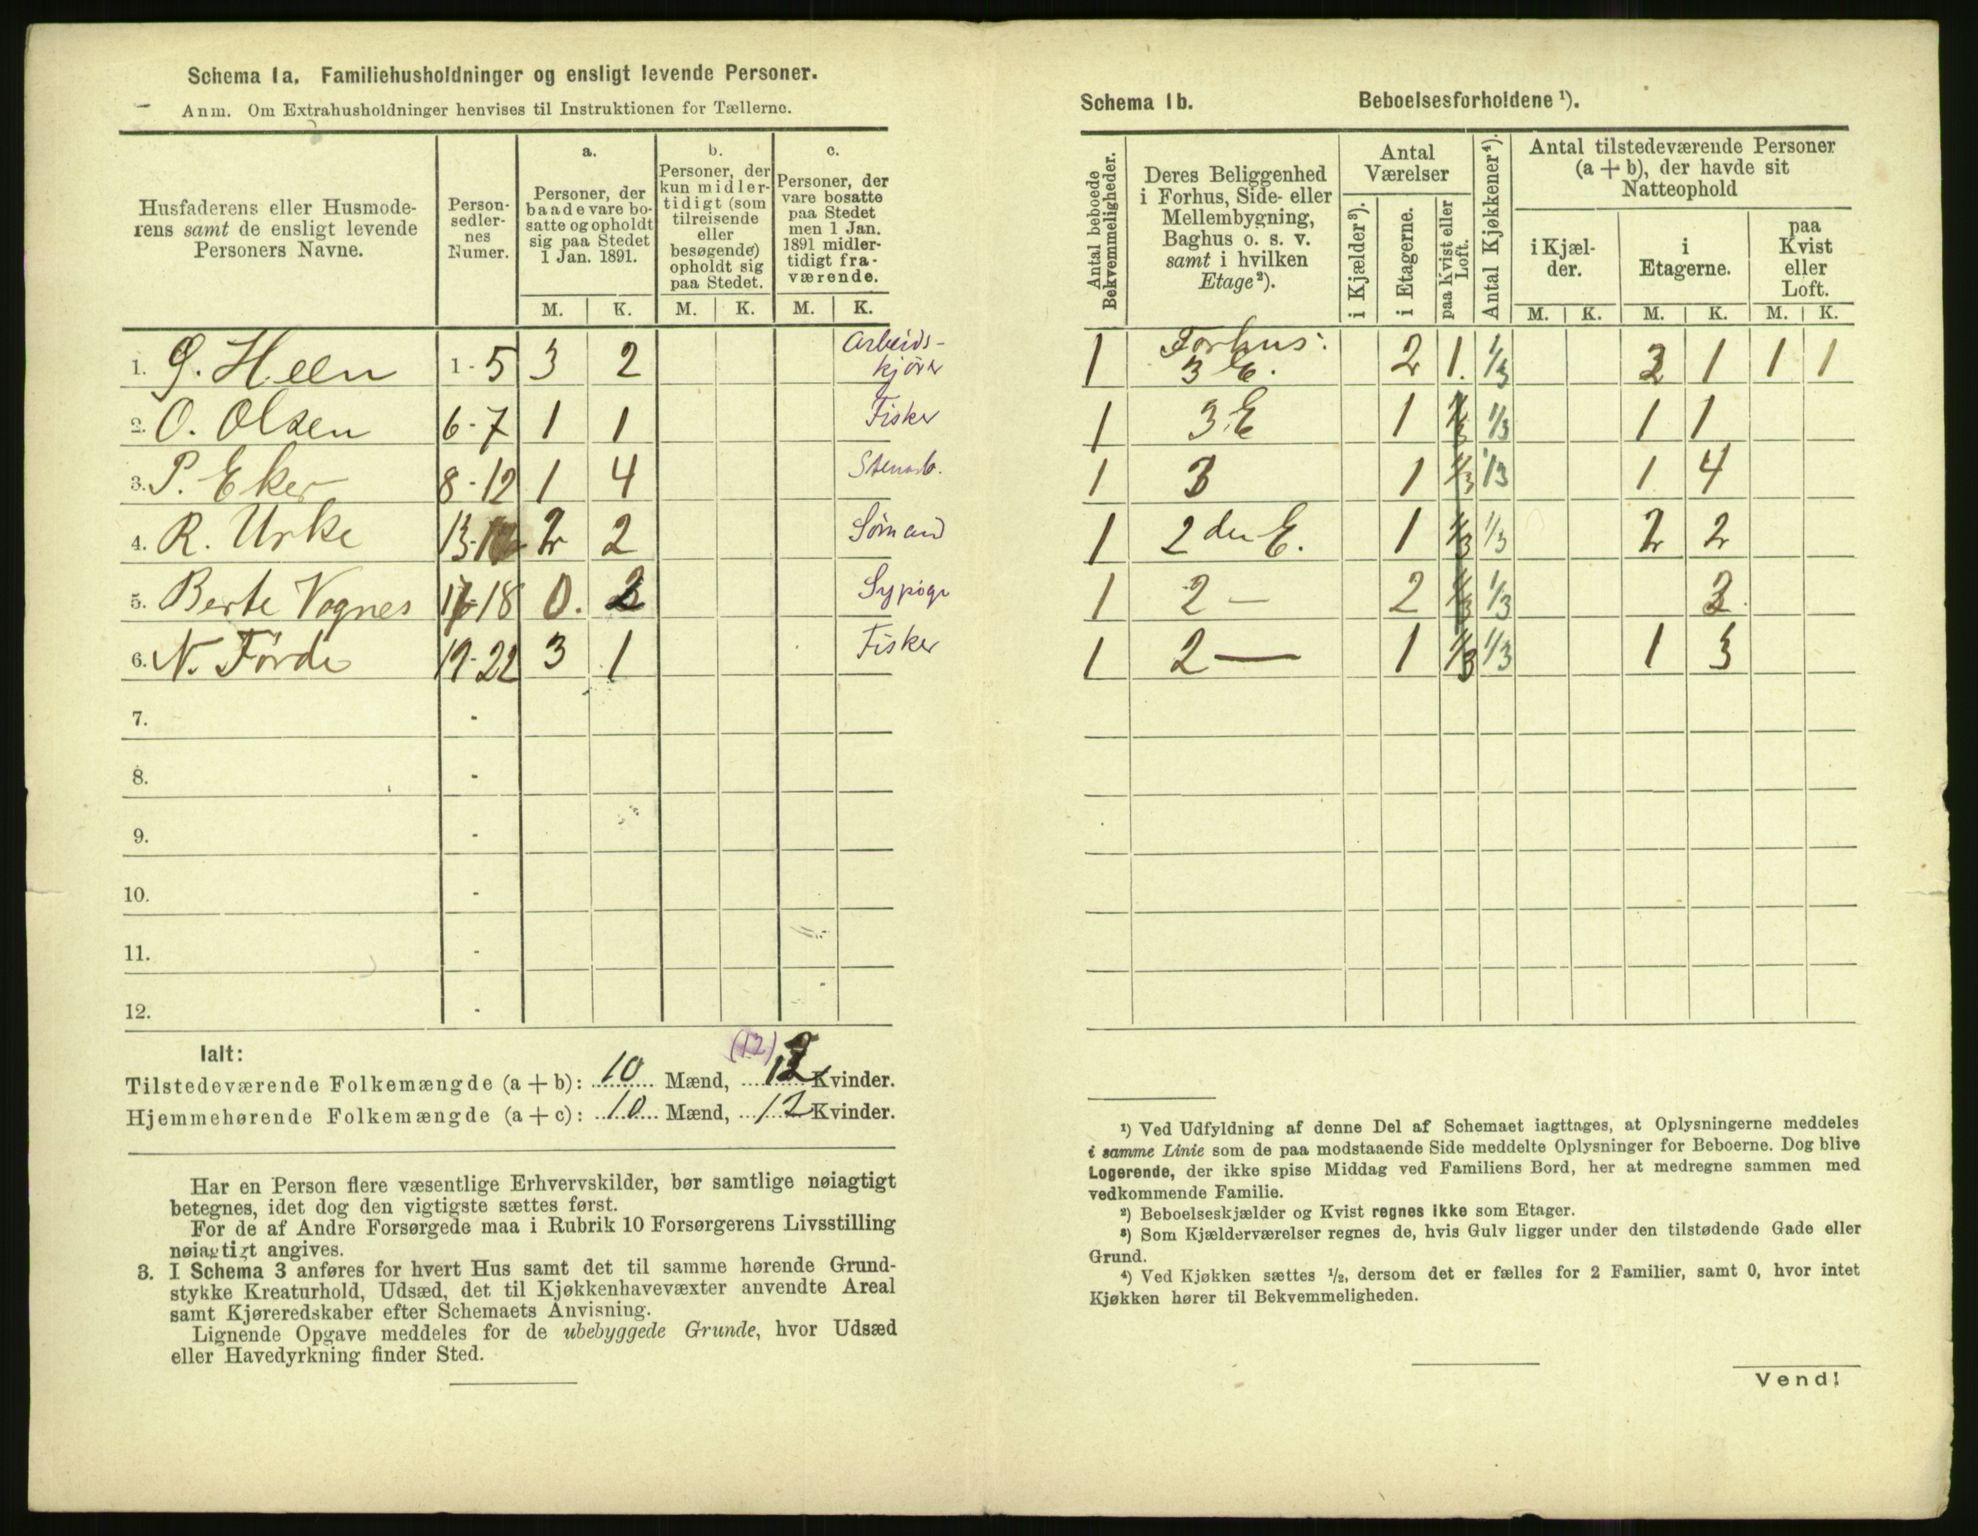 Schema 1a. Familiehusholdninger og ensligt levende Personer.
Anm. Om Extrahusholdninger henvises til Instruktionen for Tællerne.
Husfaderens eller Husmode-
rens samt de ensligt levende
Personers Navne.
Person-
sedler-
nes
Numer.
a.
Personer, der
baade vare bo-
satte og opholdt
sig paa Stedet
1 Jan. 1891.
b.
Personer, der
kun midler-
tidigt (som
tilreisende
eller
besøgende)
opholdt sig
paa Stedet.
c.
Personer, der
vare bosatte
paa Stedet
men 1 Jan.
1891 midler-
tidigt fra-
værende.
M. K. M. K. M. K.
1. G. Heen 1-5 3 2 Arbeids-
kjører
2. O. Olsen 6-7 1 1 Fisker
3. P. Eker 8-12 1 4 Stenarb.
4. R. Urke 13-16 2 2 Sømand
5. Berte Vognes 17-18 0. 2 Sypige
6. N. Førde 19-22 3 1 Fisker
7. -
8. -
9. -
10. -
11. -
12. -
Ialt:
(12)
Tilstedeværende Folkemængde (a + b): 10 Mænd, 12 Kvinder.
Hjemmehørende Folkemængde (a + c): 10 Mænd, 12 Kvinder.
Har en Person flere væsentlige Erhvervskilder, bør samtlige nøiagtigt
betegnes, idet dog den vigtigste sættes først.
For de af Andre Forsørgede maa i Rubrik 10 Forsørgerens Livsstilling
nøiagtigt angives.
3. I Schema 3 anføres for hvert Hus samt det til samme hørende Grund-
stykke Kreaturhold, Udsæd, det til Kjøkkenhavevæxter anvendte Areal
samt Kjøreredskaber efter Schemaets Anvisning.
Lignende Opgave meddeles for de ubebyggede Grunde, hvor Udsæd
eller Havedyrkning finder Sted.
Schema 1b. Beboelsesforholdene ¹).
Antal beboede
Bekvemmeligheder.
Deres Beliggenhed
i Forhus, Side- eller
Mellembygning,
Baghus o. s. v.
samt i hvilken
Etage ²).
Antal
Værelser
i Kjælder ³).
i Etagerne.
paa Kvist eller
Loft.
Antal Kjøkkener ⁴).
Antal tilstedeværende Personer
(a + b), der havde sit
Natteophold
i Kjæl-
der.
i
Etagerne.
paa
Kvist
eller
Loft.
M. K. M. K. M. K.
1 Forhus:
3 E. 2 1. 1/3 2 1 1 1
1 3 E 1 1/3 1/3 1 1
1 3 1 1/3 1/3 1 4
1 2den E. 1 1/3 1/3 2 2
1 2 — 2 1/3 1/3 2
1 2 — 1 1/3 1/3 1 3
¹) Ved Udfyldning af denne Del af Schemaet iagttages, at Oplysningerne meddeles
i samme Linie som de paa modstaaende Side meddelte Oplysninger for Beboerne. Dog blive
Logerende, der ikke spise Middag ved Familiens Bord, her at medregne sammen med
vedkommende Familie.
²) Beboelseskjælder og Kvist regnes ikke som Etager.
³) Som Kjælderværelser regnes de, hvis Gulv ligger under den tilstødende Gade eller
Grund.
⁴) Ved Kjøkken sættes ½, dersom det er fælles for 2 Familier, samt 0, hvor intet
Kjøkken hører til Bekvemmeligheden.
Vend!